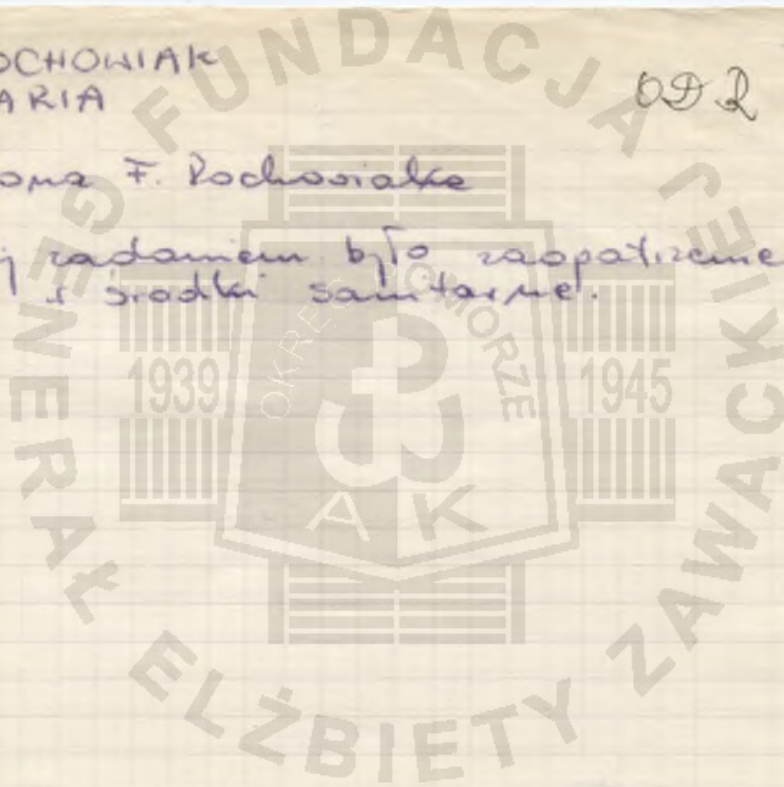 OCHOWIAK
ARIA
OD 2
ona F. Rochowiaka
j zadaniem było zaopatrzenie
i środki sanitarne.
FUNDACJA GENERAŁ ELŻBIETY ZAWACKIEJ
OKRĘG POMORZE
1939
1945
AK